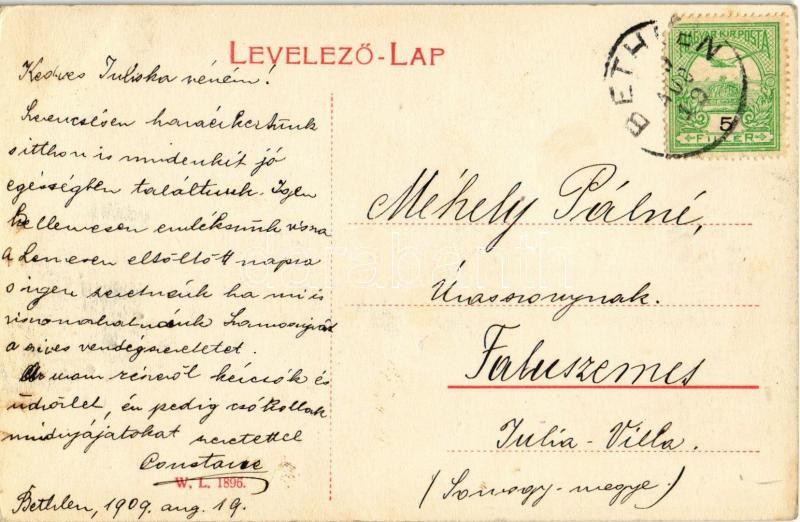 LEVELEZŐ-LAP
Kedves Juliska néném!
Szerencsésen hazaérkeztünk
s itthon is mindenkit jó
egészségben találtunk. Igen
kellemesen emlékszünk vissza
a Lemesen eltöltött napra
s igen szeretnénk ha mi is
viszonozhatnánk Szamosujvárt
a szives vendégszeretetet.
Az uram részéről kézcsók és
üdvözlet, én pedig csókollak
mindnyájatokat szeretettel
Constance
W. L. 1896.
Bethlen, 1909. aug. 19.
BETHLEN
MAGYAR KIR. POSTA
5
FILLÉR
Méhely Pálné,
Úrasszonynak.
Faluszemes
Julia-Villa.
(Somogy-megye.)